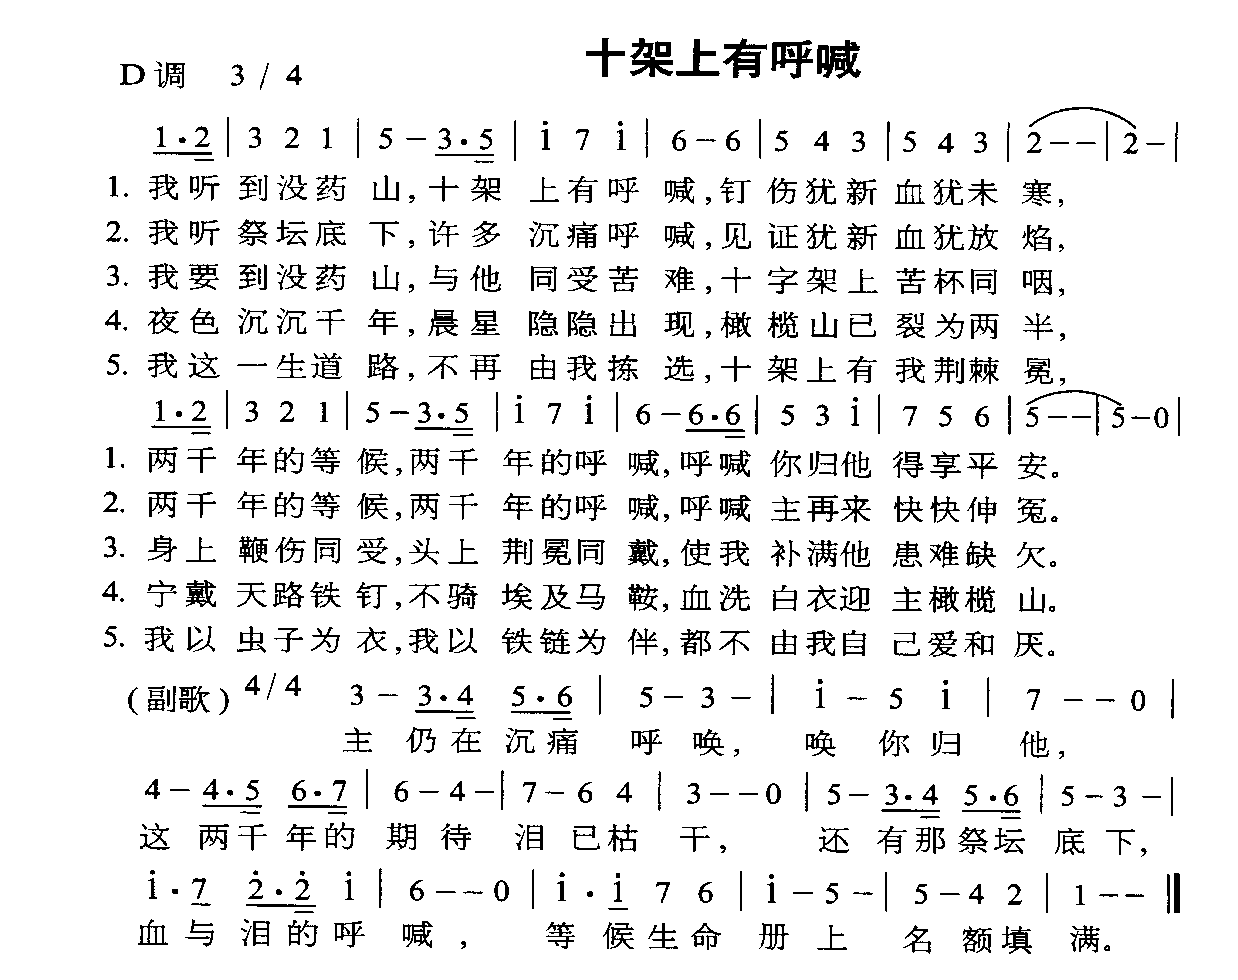 十架上有呼喊
D调 3/4
1·2 | 3 2 1 | 5-3·5 | i 7 i | 6-6 | 5 4 3 | 5 4 3 | 2-- | 2- |
1. 我听 到没药 山,十架 上有呼 喊,钉 伤犹新 血犹未 寒,
2. 我听 祭坛底 下,许多 沉痛呼 喊,见 证犹新 血犹放 焰,
3. 我要 到没药 山,与他 同受苦 难,十 字架上 苦杯同 咽,
4. 夜色 沉沉千 年,晨星 隐隐出 现,橄 榄山已 裂为两 半,
5. 我这 一生道 路,不再 由我拣 选,十 架上有 我荆棘 冕,
1·2 | 3 2 1 | 5-3·5 | i 7 i | 6-6·6 | 5 3 i | 7 5 6 | 5-- | 5-0 |
1. 两千 年的等 候,两千 年的呼 喊,呼喊 你归他 得享平 安。
2. 两千 年的等 候,两千 年的呼 喊,呼喊 主再来 快快伸 冤。
3. 身上 鞭伤同 受,头上 荆冕同 戴,使我 补满他 患难缺 欠。
4. 宁戴 天路铁 钉,不骑 埃及马 鞍,血洗 白衣迎 主橄榄 山。
5. 我以 虫子为 衣,我以 铁链为 伴,都不 由我自 己爱和 厌。
(副歌) 4/4 3- 3·4 5·6 | 5-3- | i-5 i | 7--0 |
主 仍在 沉痛 呼 唤, 唤 你 归 他,
4-4·5 6·7 | 6-4- | 7-6 4 | 3--0 | 5-3·4 5·6 | 5-3- |
这 两千 年的 期 待 泪 已枯 干, 还 有那 祭坛 底 下,
i·7 2·2 i | 6--0 | i·i 7 6 | i-5- | 5-4 2 | 1-- ‖
血与 泪的呼 喊, 等 候生命 册 上 名 额填 满。